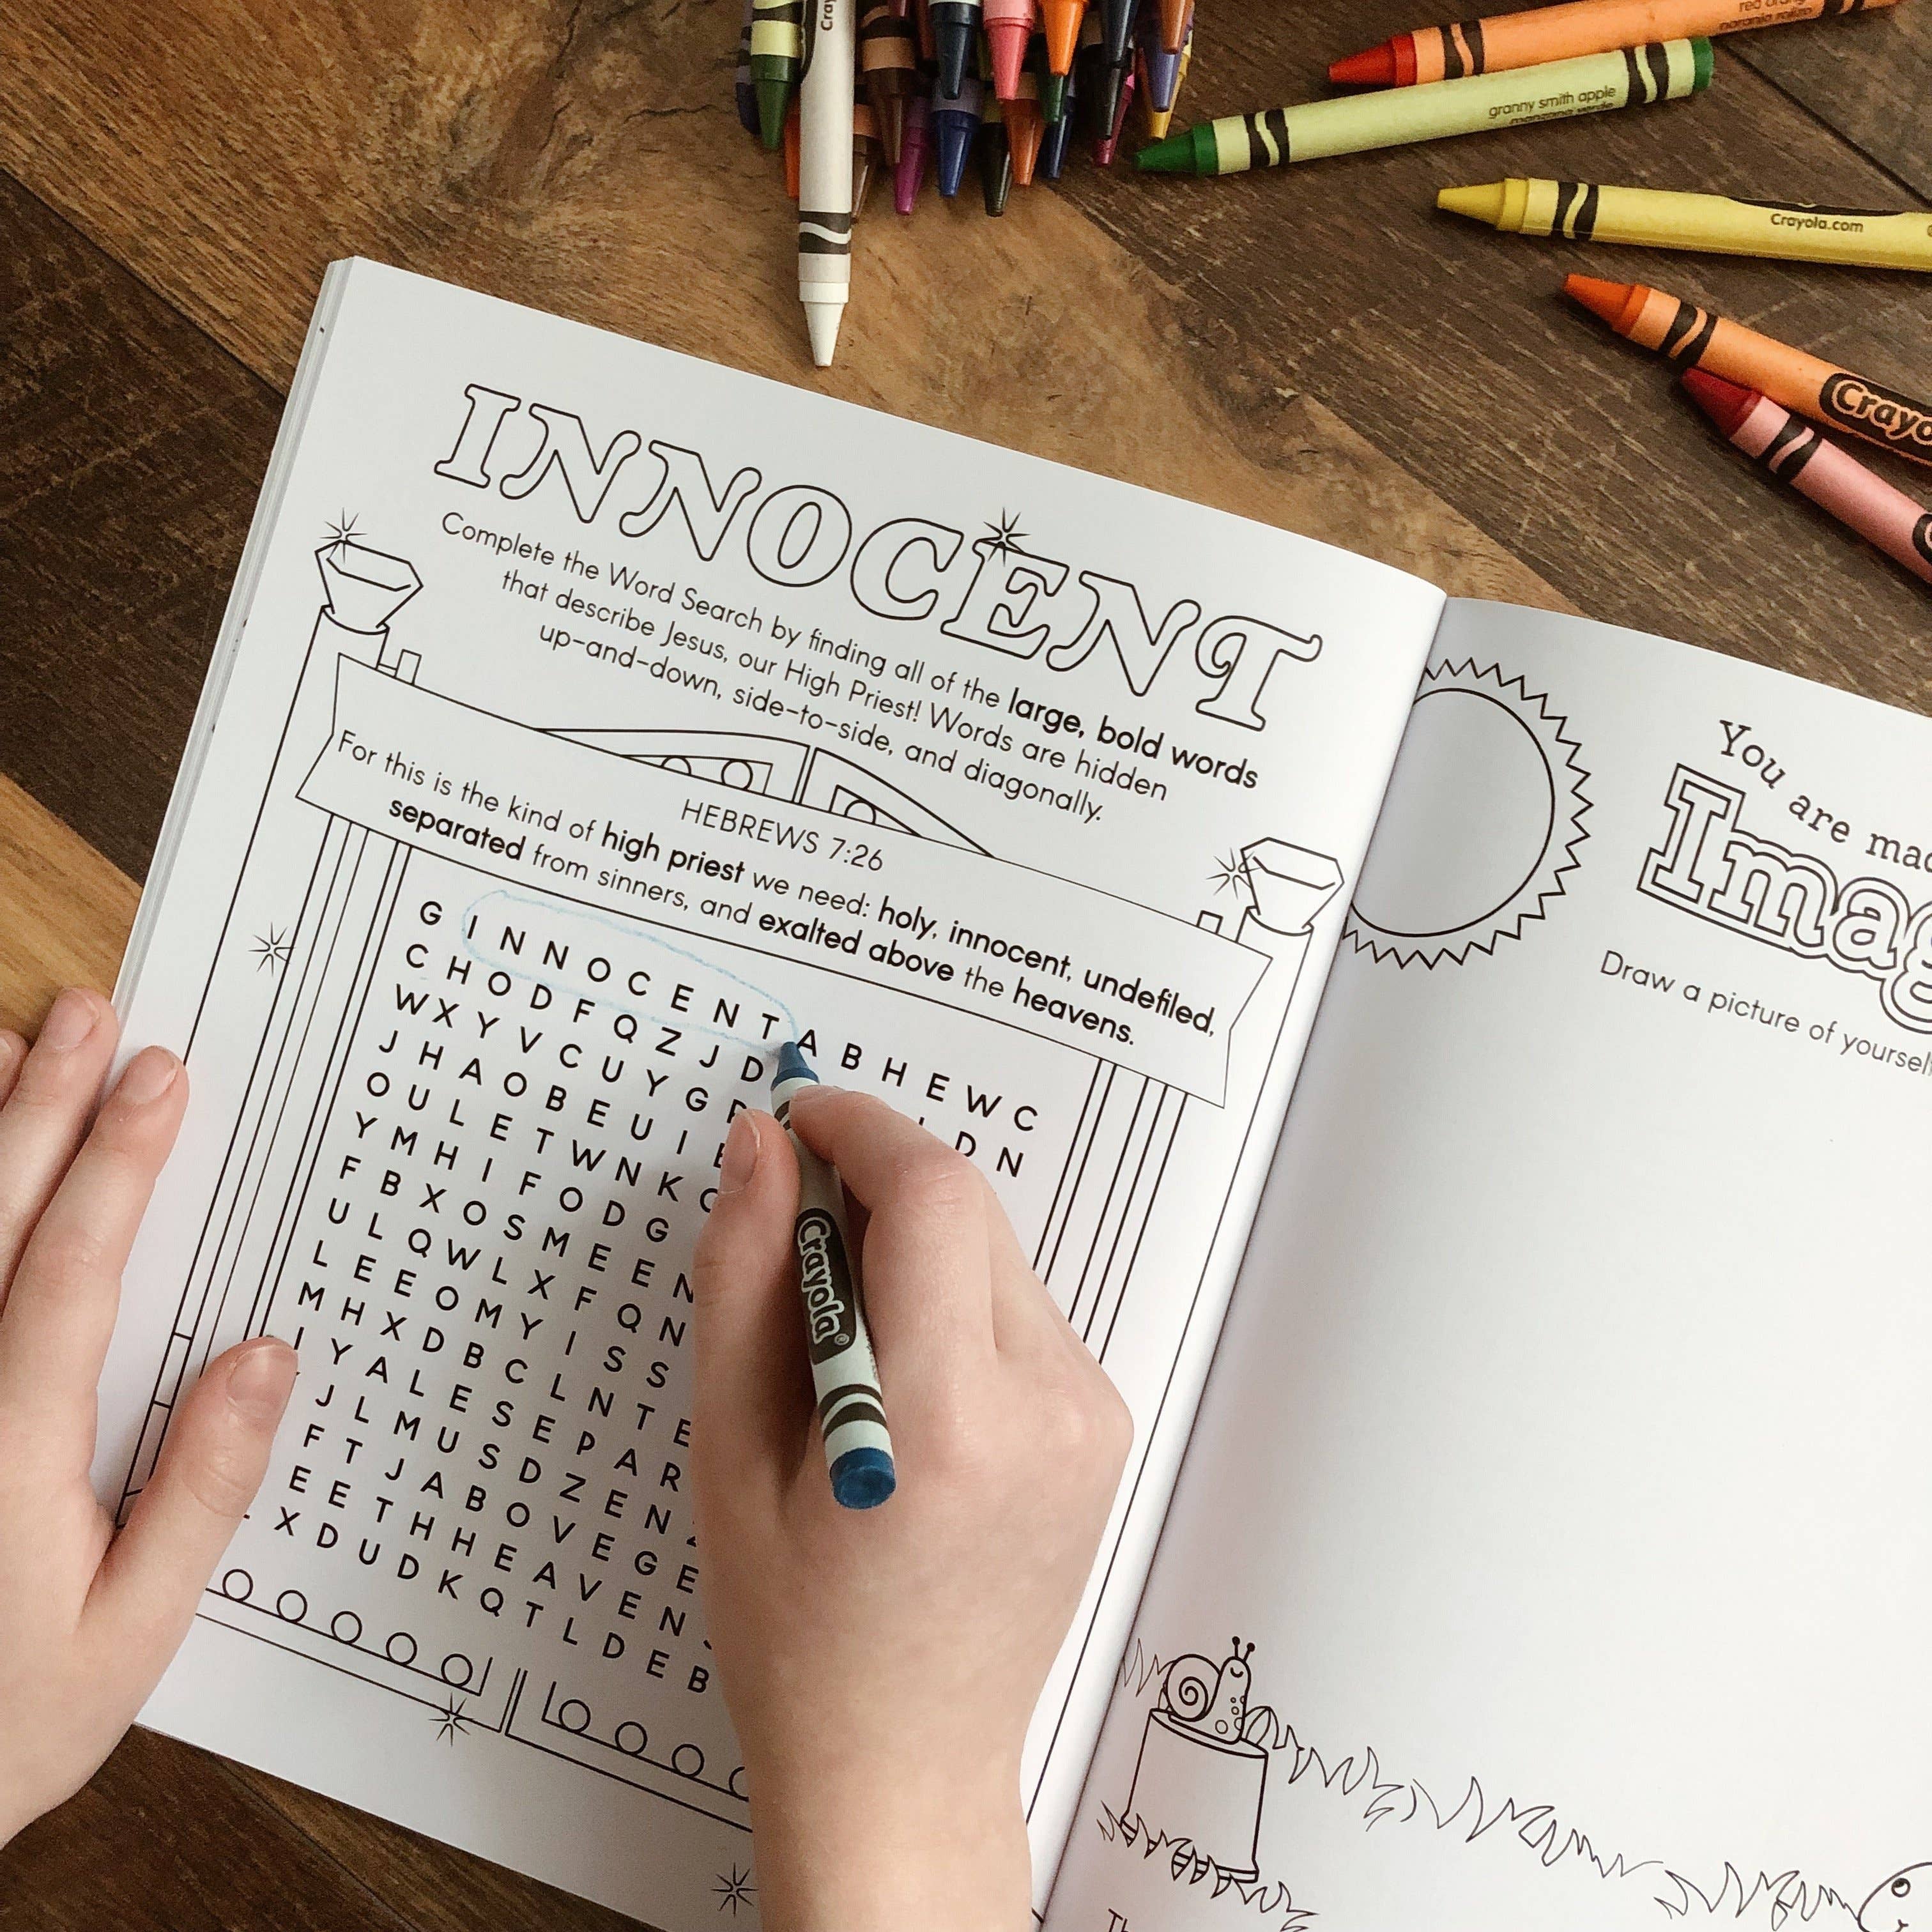 Cray
red orange
naranja rojizo
granny smith apple
manzana verde
Crayola.com
Crayo
INNOCENT
Complete the Word Search by finding all of the large, bold words
that describe Jesus, our High Priest! Words are hidden
up-and-down, side-to-side, and diagonally.
HEBREWS 7:26
For this is the kind of high priest we need: holy, innocent, undefiled,
separated from sinners, and exalted above the heavens.
G I N N O C E N T A B H E W C
C H O D F Q Z J D D N
W X Y V C U Y G
J H A O B E U I
O U L E T W N K
Y M H I F O D G
F B X O S M E E N
U L Q W L X F Q N
L E E O M Y I S S
M H X D B C L N T E
I Y A L E S E P A R
J L M U S D Z E N
F T J A B O V E G E
E E T H H E A V E N
X D U D K Q T L D E B
Crayola
You are mad
Imag
Draw a picture of yoursel
Th